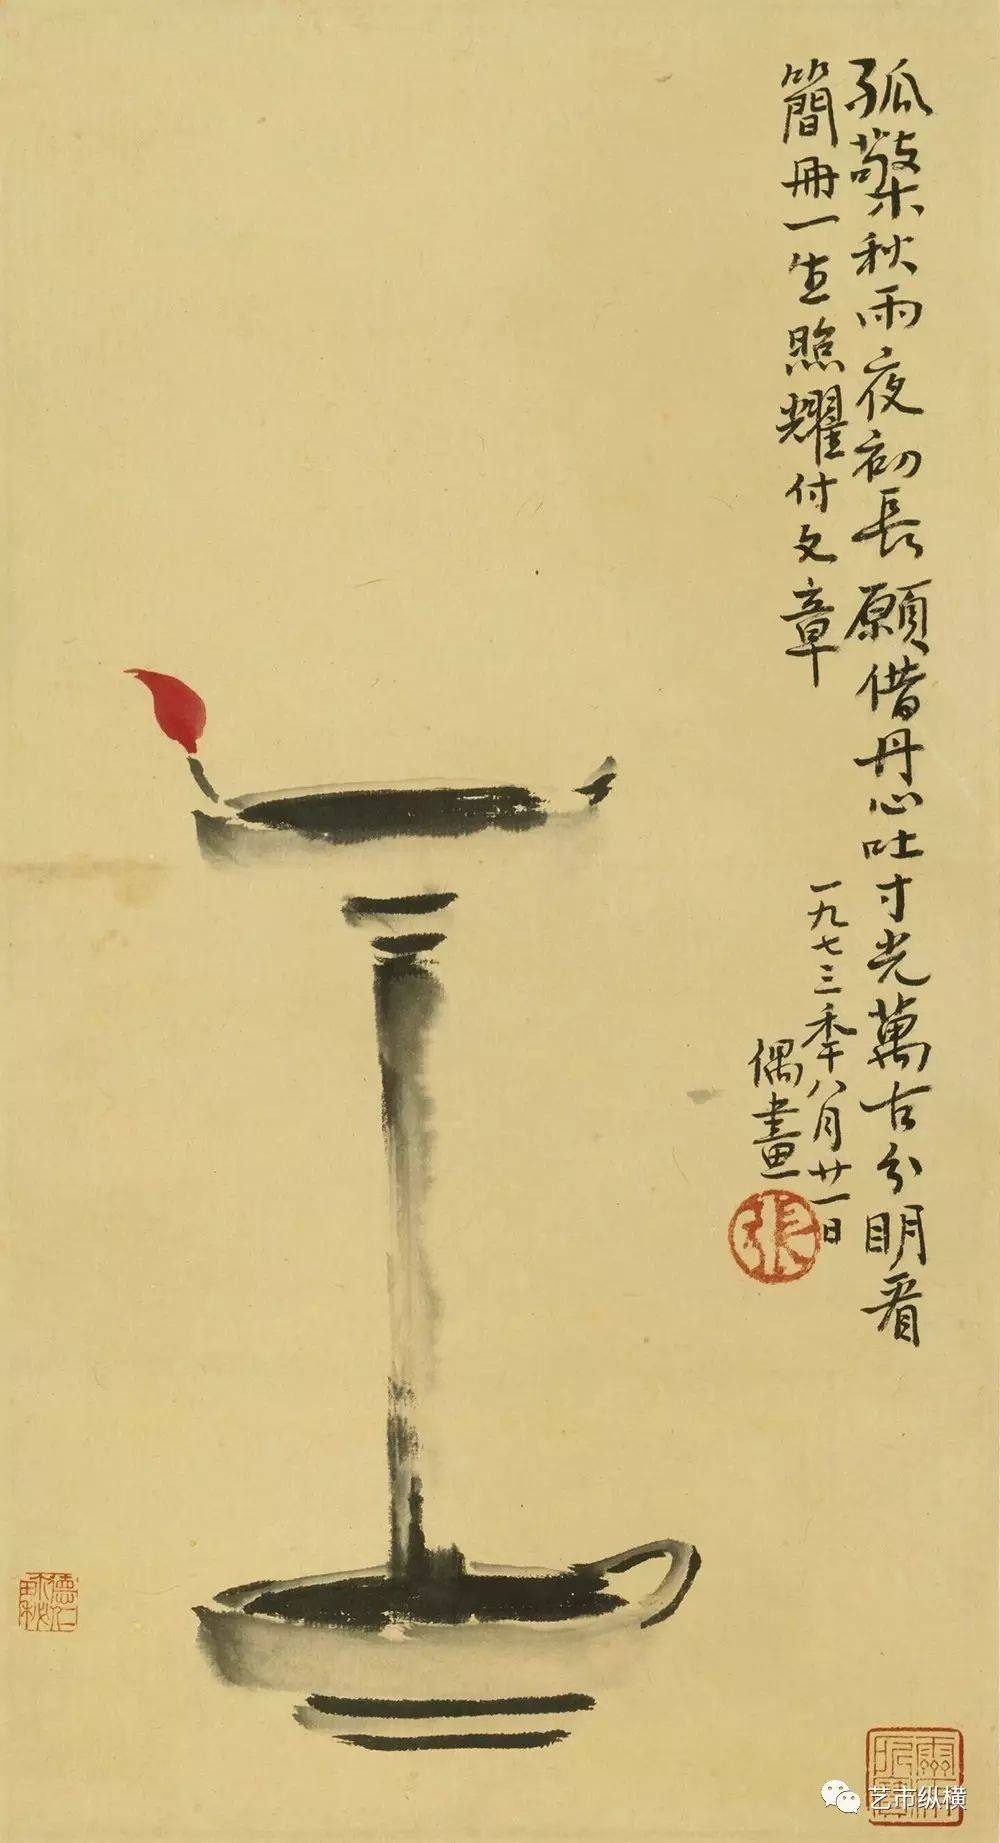 孤檠秋雨夜初長願借丹心吐寸光萬古分明看
簡冊一生照耀付文章
一九七三年八月廿一日
偶畫
張
艺市纵横